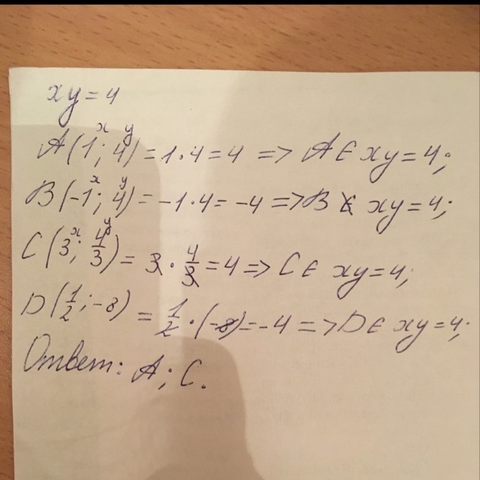 xy=4
A(1; 4)=1·4=4 => A∈ xy=4;
x y
B(-1; 4)=-1·4=-4 =>B ∉ xy=4;
x y
C(3; 4/3)= 3·4/3=4=> C∈ xy=4;
x y
D(1/2; -8) = 1/2·(-8)=-4 => D∈ xy=4;
Ответ: A; C.